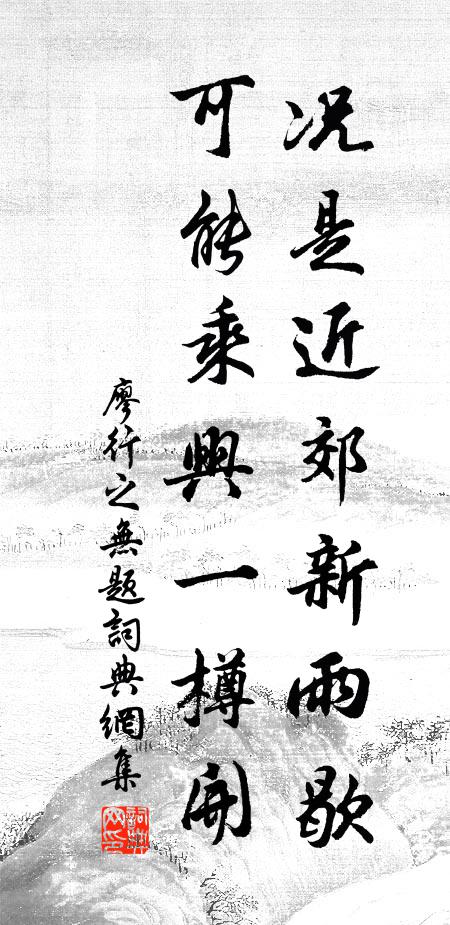 况是近郊新雨歇
可能乘興一樽開
廖行之無題詞典網集